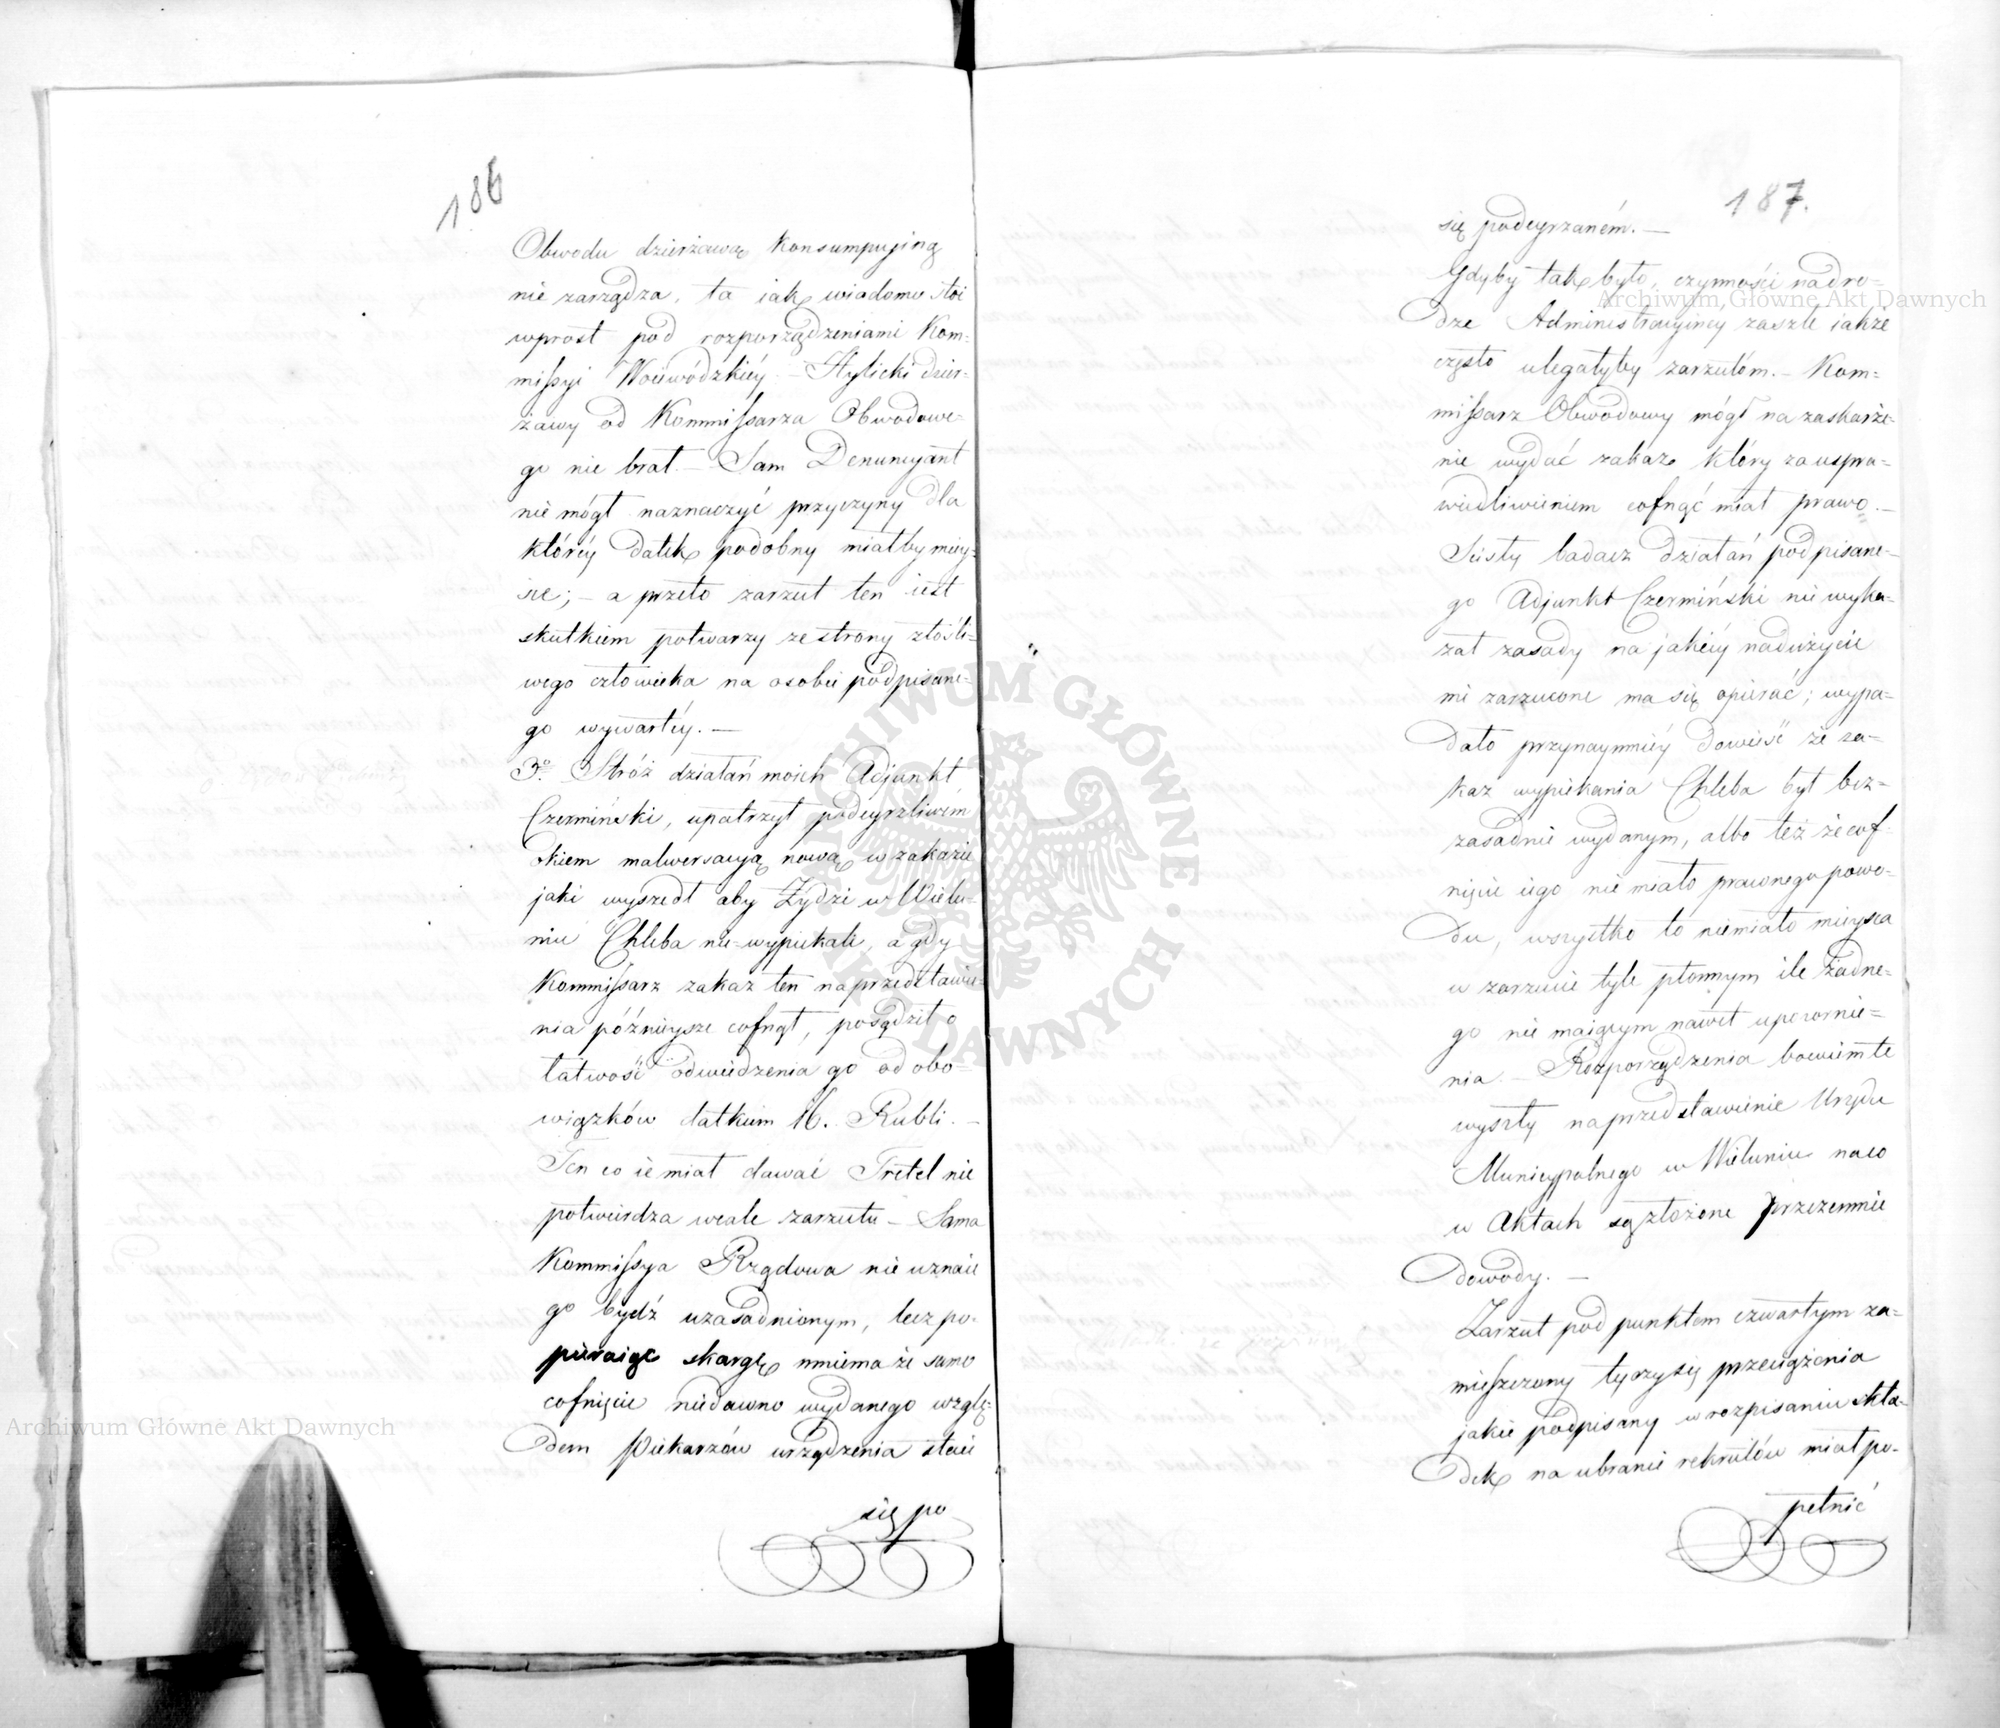 186
Obwodu dzierżawą Konsumpcyjną
nie zarządza, ta iak wiadomo stoi
wprost pod rozporządzeniami Kom-
missyi Woiewódzkiéy. — Stylicki dzier-
żawy od Kommissarza Obwodowe-
go nie brał. — Sam Denuncyant
nie mógł naznaczyć przyczyny dla
któréy datek podobny miałby miey-
sce; — a przeto zarzut ten iest
skutkiem potwarzy ze strony złośli-
wego człowieka na osobie podpisane-
go wywartéy. —
3o. Stróż działań moich Adjunkt
Czermiński, upatrzył podeyrzliwém
okiem malwersacyą nową w zakazie
jaki wyszedł aby Żydzi w Wielu-
niu Chleba nie wypiekali, a gdy
Kommissarz zakaz ten na przedstawie-
nia późnieysze cofnął, posądził o
łatwość odwiedzenia go od obo-
wiązków datkiem 16. Rubli. —
Ten co ie miał dawać Fretel nie
potwierdza wcale zarzutu — Sama
Kommissya Rządowa nie uznaie
go bydź uzasadnionym, lecz po-
pieraiąc skargę mniema że samo
cofnięcie niedawno wydanego wzglę-
dem Piekarzów urządzenia staie
się po
187.
się podeyrzaném. —
Gdyby tak było, czynności na dro-
dze Administracyinéy zaszłe iakże
często ulegałyby zarzutóm. — Kom-
missarz Obwodowy mógł na zaskarże-
nie wydać zakaz który za uspra-
wiedliwieniem cofnąć miał prawo. —
Ścisły badacz działań podpisane-
go Adjunkt Czermiński nie wyka-
zał zasady na jakiéy nadużycie
mi zarzucone ma się opierać; wypa-
dało przynaymniéy dowieść że za-
kaz wypiekania Chleba był bez-
zasadnie wydanym, albo też że cof-
nięcie iego nie miało prawnego powo-
du, wszystko to niemiało mieysca
w zarzucie tyle płonnym ile żadne-
go nie maiącym nawet upozornie-
nia. — Rozporządzenia bowiem te
wyszły na przedstawienie Urzędu
Municypalnego w Wieluniu na co
w Aktach są złożone przezemnie
dowody. —
Zarzut pod punktem czwartym za-
mieszczony tyczy się przeciążenia
jakie podpisany w rozpisaniu skła-
dek na ubranie rekrutów miał po-
pełnić
Archiwum Główne Akt Dawnych
Archiwum Główne Akt Dawnych
ARCHIWUM GŁÓWNE • AKT DAWNYCH •